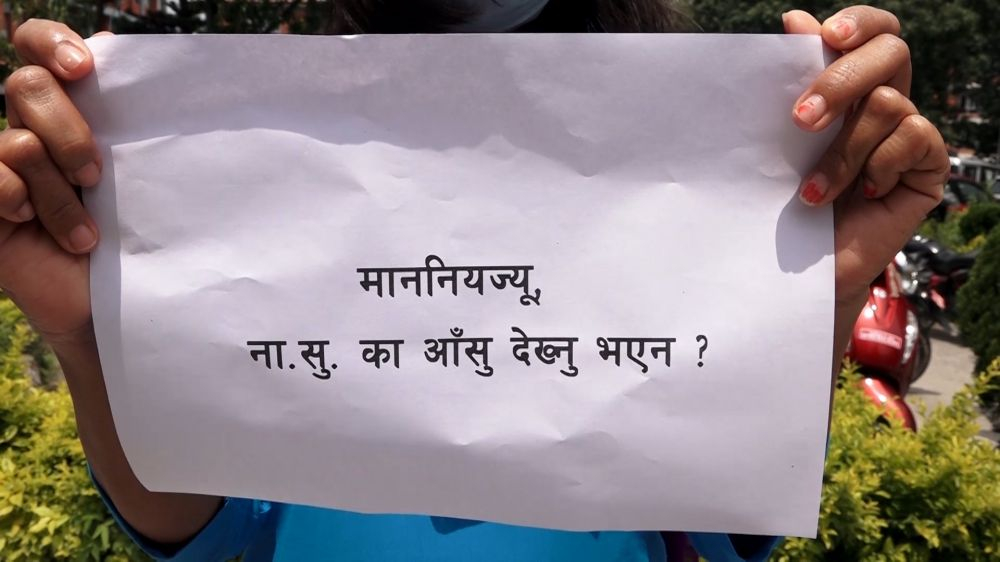 माननियज्यू,
ना.सु. का आँसु देख्नु भएन ?